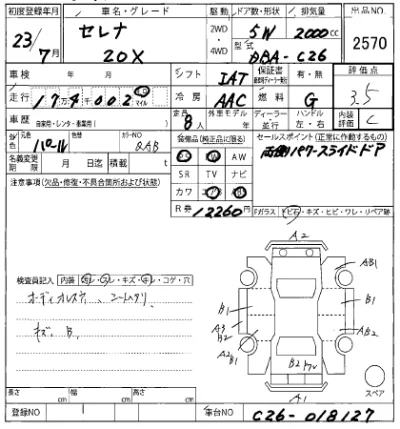 初度登録年月 車名・グレード 駆動 ドア数・形状 排気量 出品NO.
23/7月 セレナ 20X 2WD・4WD 5W 2000cc 2570
型式 DBA-C26
車検 年 月 シフト IAT 保証書 有・無 評価点 3.5
走行 174,002 冷房 AAC 燃料 G
車歴 自家用・レンタ・事業用( ) 定員 8人 外車モデル ディーラー・並行 ハンドル 左・右 内装評価 C
色 元色 パール 色替 カラーNO QAB
装備品(純正品に限る) セールスポイント(正常に作動するもの)
両側パワースライドドア
AW
名義変更期限 月 日迄 積載 t
SR TV ナビ
注意事項(欠品・修復・不具合箇所および状態)
カワ エアB ABS
R券 12260円
Fガラス トビ石・キズ・ヒビ・ワレ・リペア跡
A2
AB1
B1
B1
A3
B2
AB2
A2
B1
B2
A1
スペア
検査員記入 内装 ヨレ・スレ・キレ・コゲ・穴
キズ、B、
長さ cm 幅 cm 高さ cm
登録NO 車台NO C26-018127